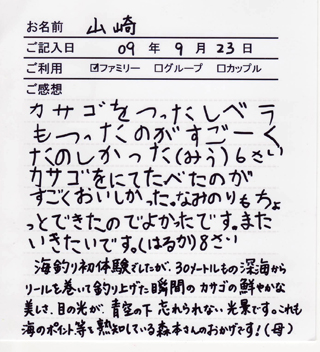 お名前 山崎
ご記入日 09 年 9 月 23 日
ご利用 ☑ファミリー □グループ □カップル
ご感想
カサゴをつったしベラ
もつったのがすごーく
たのしかった(みう)6さい
カサゴをにてたべたのが
すごくおいしかった。なみのりもちょ
っとできたのでよかったです。また
いきたいです。(はるか)8さい
海釣り初体験でしたが、30メートルもの深海から
リールを巻いて釣り上げた瞬間のカサゴの鮮やかな
美しさ、目の光が、青空の下忘れられない光景です。これも
海のポイント等を熟知している森本さんのおかげです!(母)